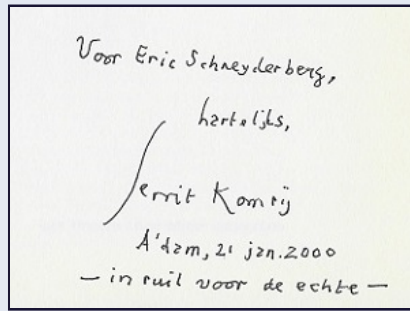 Voor Eric Schneyderberg,
hartelijks,
Gerrit Komrij
A'dam, 21 jan. 2000
— in ruil voor de echte —